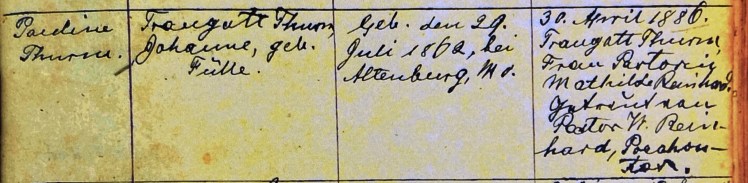 Pauline
Thurm.
Traugott Thurm,
Johanne, geb.
Fülle.
Geb. den 29.
Juli 1862, bei
Altenburg, Mo.
30. April 1886.
Traugott Thurm,
Frau Pastorin
Mathilde Reinhard.
Getraut von
Pastor W. Rein-
hard, Pocahon-
tas.